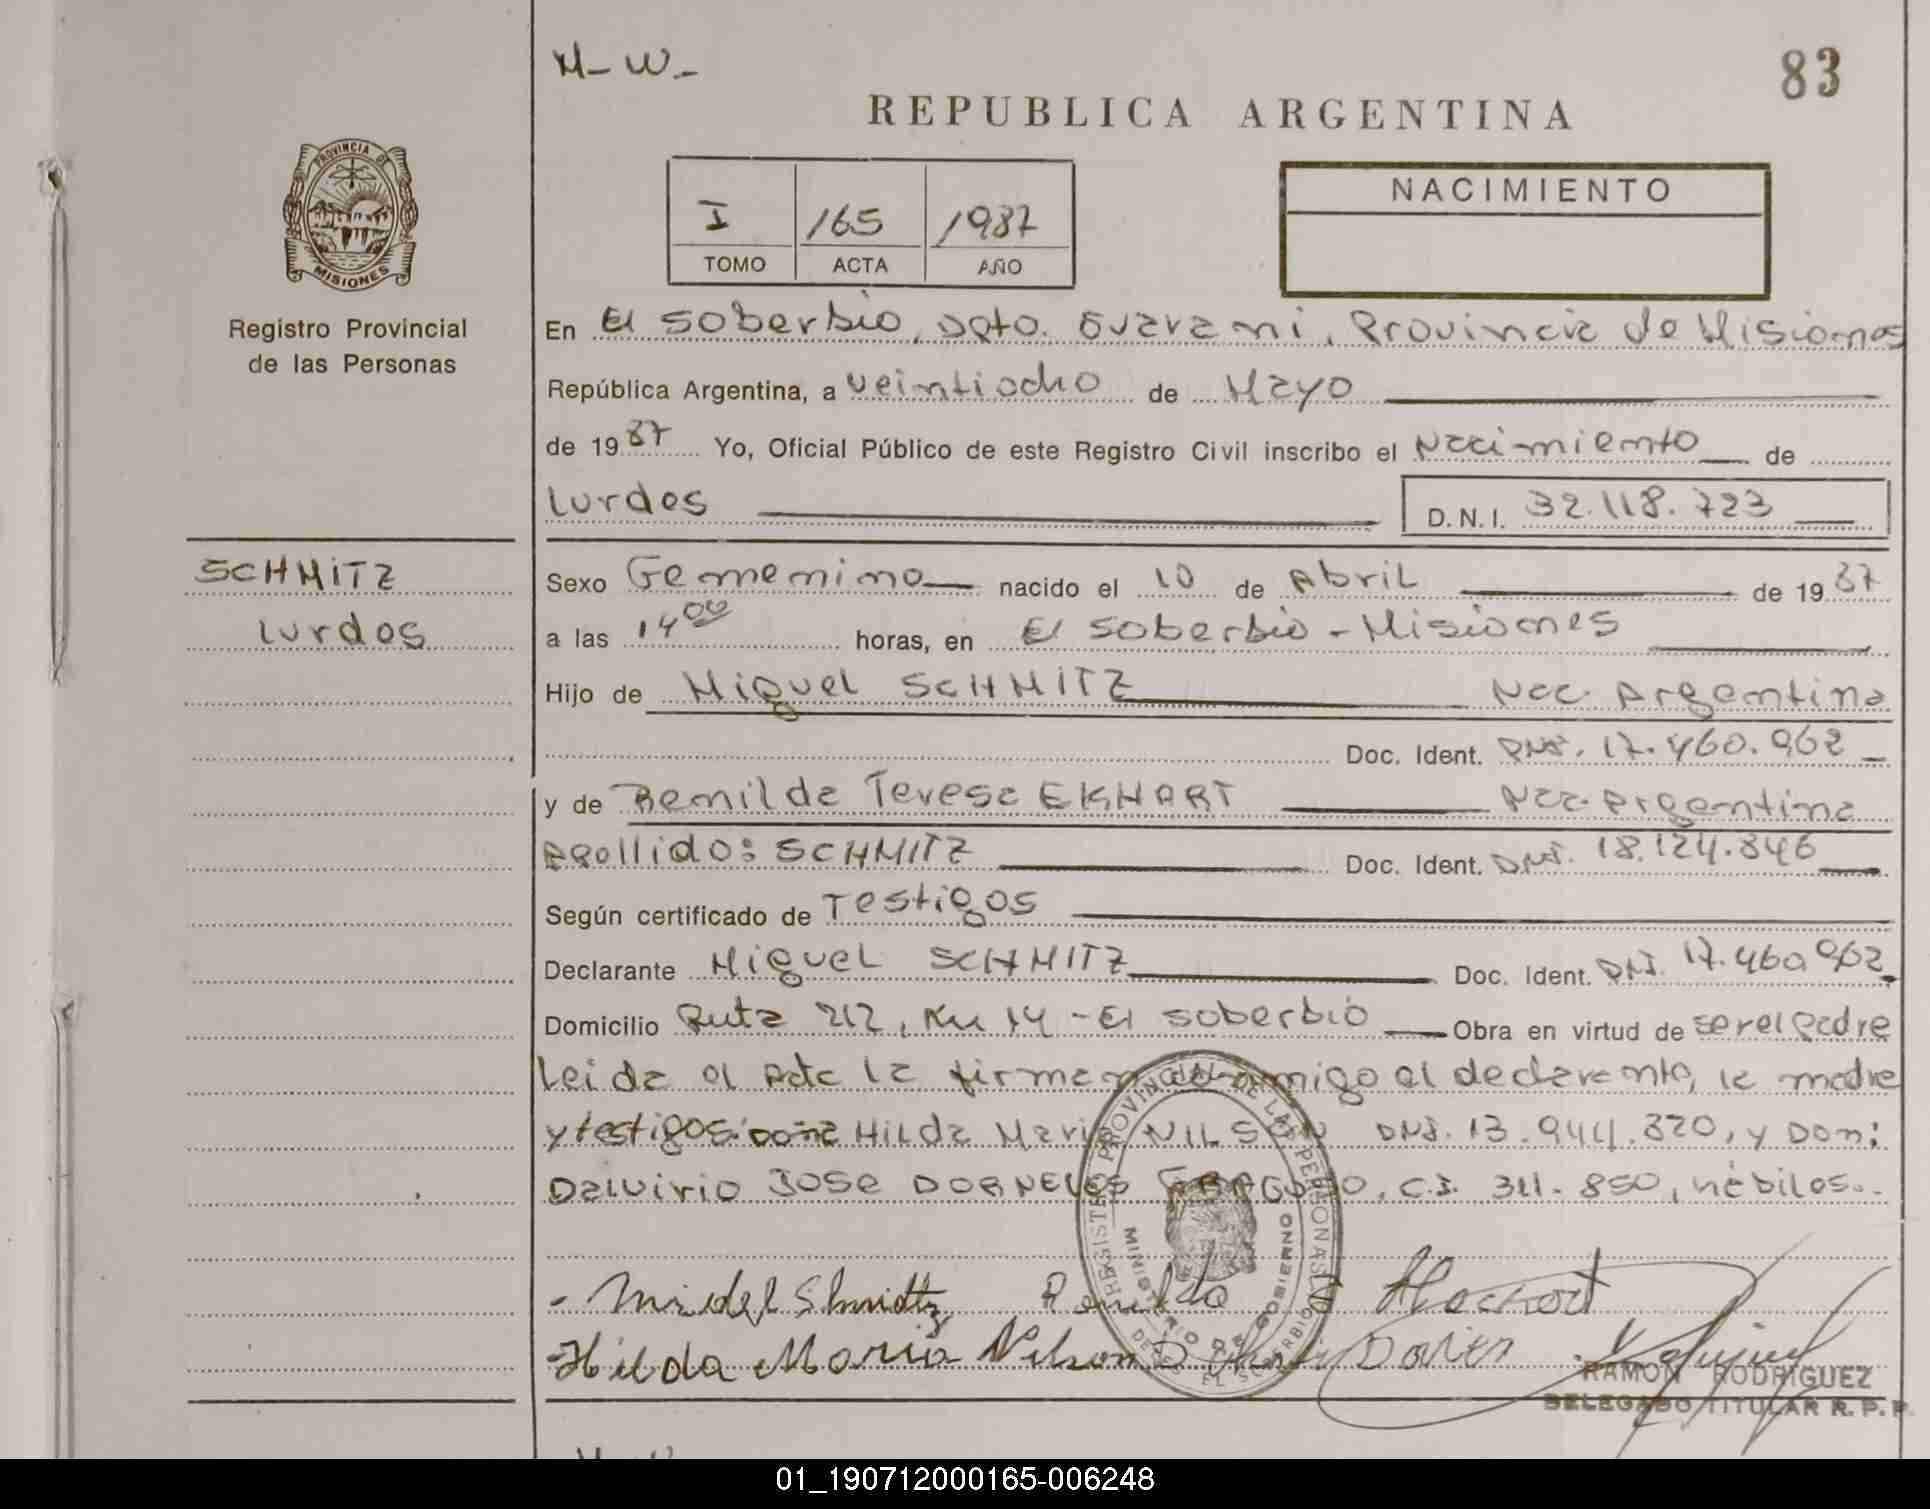 M-W-
83
REPUBLICA ARGENTINA
PROVINCIA DE
MISIONES
Registro Provincial
de las Personas
I 165 1987
TOMO ACTA AÑO
NACIMIENTO
En El Soberbio, Dpto. Guarani, Provincia de Misiones
República Argentina, a veintiocho de Mayo
de 1987 Yo, Oficial Público de este Registro Civil inscribo el Nacimiento de
Lurdes D.N.I. 32.118.723
SCHMITZ
Lurdes
Sexo Femenino nacido el 10 de Abril de 1987
a las 14 00 horas, en El Soberbio - Misiones
Hijo de Miguel SCHMITZ Nac. Argentina
Doc. Ident. DNI. 17.460.962
y de Remilda Teresa EKHART Nac. Argentina
Apellido: SCHMITZ Doc. Ident. DNI. 18.124.846
Según certificado de Testigos
Declarante Miguel SCHMITZ Doc. Ident. DNI. 17.460.962
Domicilio Ruta 212, Km 14 - El Soberbio Obra en virtud de ser el padre
Leida el Acta la firman conmigo el declarante, la madre
y testigos: doña Hilda Maria NILSON DNI. 13.944.320, y Don:
Dalvirio Jose DORNELES C.I. 311.850, hábiles.-
REGISTRO PROVINCIAL DE LAS PERSONAS
MINISTERIO DE GOBIERNO
EL SOBERBIO
Hilda Maria Nilson
RAMON RODRIGUEZ
DELEGADO TITULAR R.P.P.
01_190712000165-006248